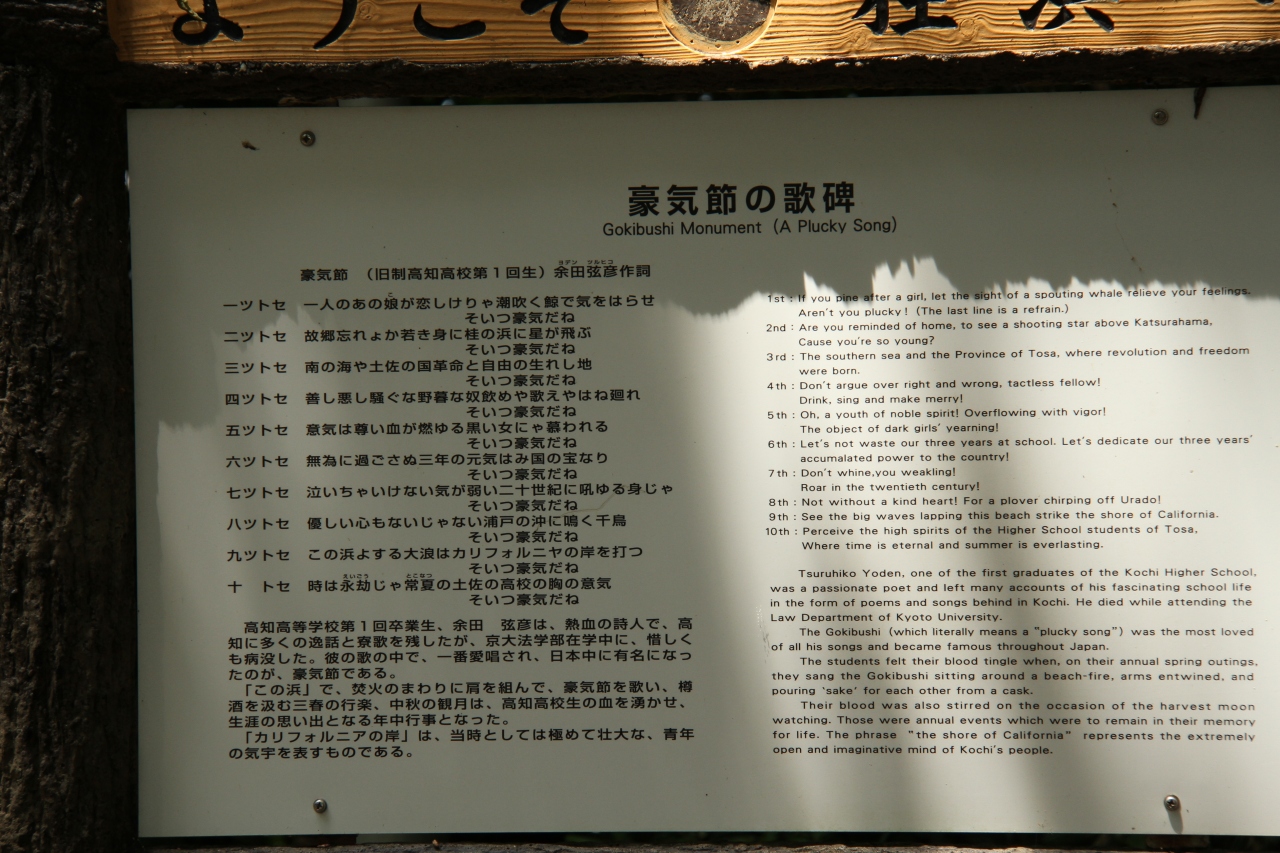 ようこそ 桂浜
豪気節の歌碑
Gokibushi Monument (A Plucky Song)
豪気節 (旧制高知高校第1回生) 余田弦彦作詞
ヨデン ツルヒコ
一ツトセ 一人のあの娘が恋しけりゃ潮吹く鯨で気をはらせ
こ
そいつ豪気だね
二ツトセ 故郷忘れょか若き身に桂の浜に星が飛ぶ
そいつ豪気だね
三ツトセ 南の海や土佐の国革命と自由の生れし地
そいつ豪気だね
四ツトセ 善し悪し騒ぐな野暮な奴飲めや歌えやはね廻れ
そいつ豪気だね
五ツトセ 意気は尊い血が燃ゆる黒い女にゃ慕われる
そいつ豪気だね
六ツトセ 無為に過ごさぬ三年の元気はみ国の宝なり
そいつ豪気だね
七ツトセ 泣いちゃいけない気が弱い二十世紀に吼ゆる身じゃ
そいつ豪気だね
八ツトセ 優しい心もないじゃない浦戸の沖に鳴く千鳥
そいつ豪気だね
九ツトセ この浜よする大浪はカリフォルニヤの岸を打つ
そいつ豪気だね
えいごう とこなつ
十 トセ 時は永劫じゃ常夏の土佐の高校の胸の意気
そいつ豪気だね
高知高等学校第1回卒業生、余田 弦彦は、熱血の詩人で、高
知に多くの逸話と寮歌を残したが、京大法学部在学中に、惜しく
も病没した。彼の歌の中で、一番愛唱され、日本中に有名になっ
たのが、豪気節である。
「この浜」で、焚火のまわりに肩を組んで、豪気節を歌い、樽
酒を汲む三春の行楽、中秋の観月は、高知高校生の血を湧かせ、
生涯の思い出となる年中行事となった。
「カリフォルニアの岸」は、当時としては極めて壮大な、青年
の気宇を表すものである。
1st : If you pine after a girl, let the sight of a spouting whale relieve your feelings.
Aren't you plucky! (The last line is a refrain.)
2nd : Are you reminded of home, to see a shooting star above Katsurahama,
Cause you're so young?
3rd : The southern sea and the Province of Tosa, where revolution and freedom
were born.
4th : Don't argue over right and wrong, tactless fellow!
Drink, sing and make merry!
5th : Oh, a youth of noble spirit! Overflowing with vigor!
The object of dark girls' yearning!
6th : Let's not waste our three years at school. Let's dedicate our three years'
accumalated power to the country!
7th : Don't whine,you weakling!
Roar in the twentieth century!
8th : Not without a kind heart! For a plover chirping off Urado!
9th : See the big waves lapping this beach strike the shore of California.
10th : Perceive the high spirits of the Higher School students of Tosa,
Where time is eternal and summer is everlasting.
Tsuruhiko Yoden, one of the first graduates of the Kochi Higher School,
was a passionate poet and left many accounts of his fascinating school life
in the form of poems and songs behind in Kochi. He died while attending the
Law Department of Kyoto University.
The Gokibushi (which literally means a "plucky song") was the most loved
of all his songs and became famous throughout Japan.
The students felt their blood tingle when, on their annual spring outings,
they sang the Gokibushi sitting around a beach-fire, arms entwined, and
pouring 'sake' for each other from a cask.
Their blood was also stirred on the occasion of the harvest moon
watching. Those were annual events which were to remain in their memory
for life. The phrase "the shore of California" represents the extremely
open and imaginative mind of Kochi's people.